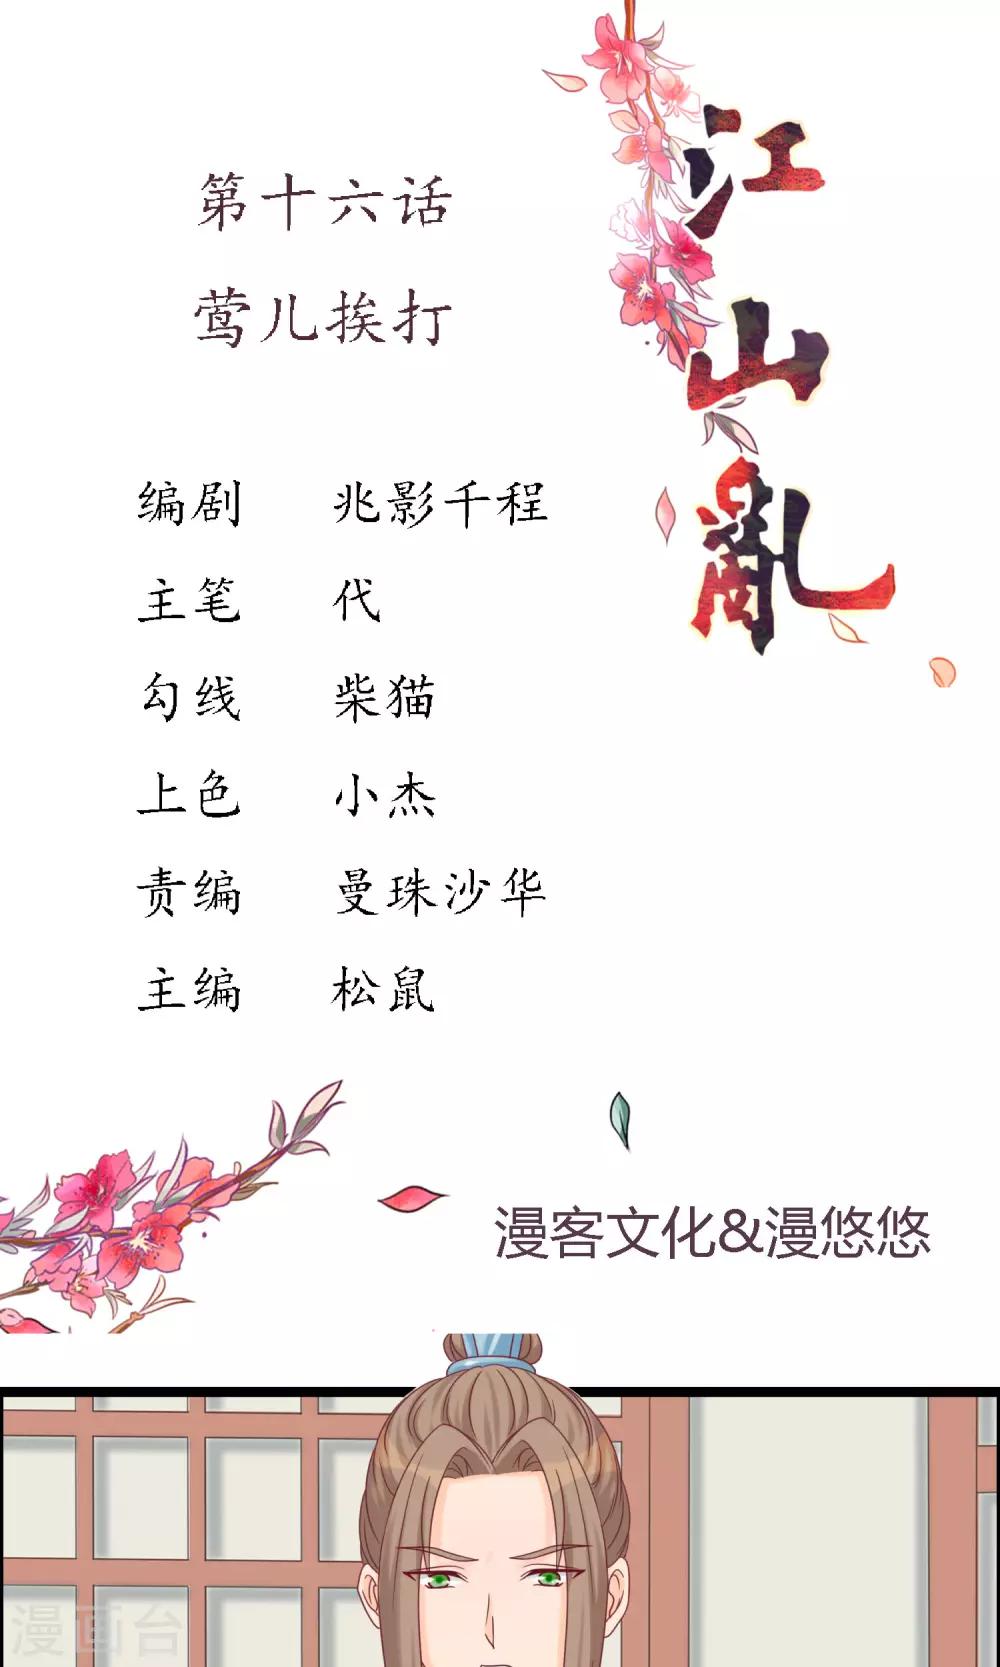 江山亂
第十六话
莺儿挨打
编剧 兆影千程
主笔 代
勾线 柴猫
上色 小杰
责编 曼珠沙华
主编 松鼠
漫客文化&漫悠悠
漫画台